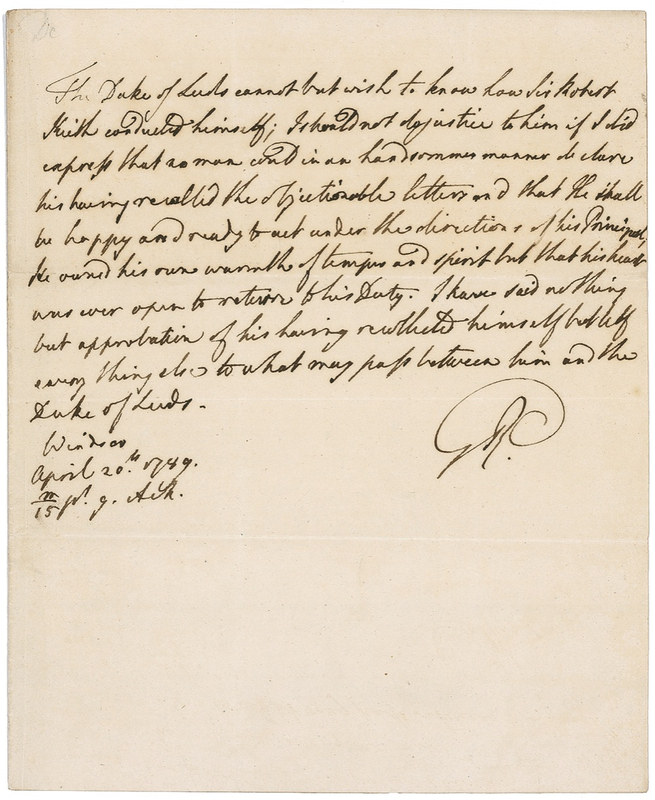 The Duke of Leeds cannot but wish to know how Sir Robert
Keith conducted himself; I should not do justice to him if I did
express that no man could in an handsommer manner declare
his having recalled the objectionable letters and that He shall
be happy and ready to act under the directions of his Principal,
He owned his own warmth of temper and spirit but that his heart
was ever open to return to his Duty. I have said nothing
but approbation of his having recollected himself but left
every thing else to what may pass between him and the
Duke of Leeds.
GR.
Windsor
April 20th. 1789.
m
15 pt. 9. A.M.